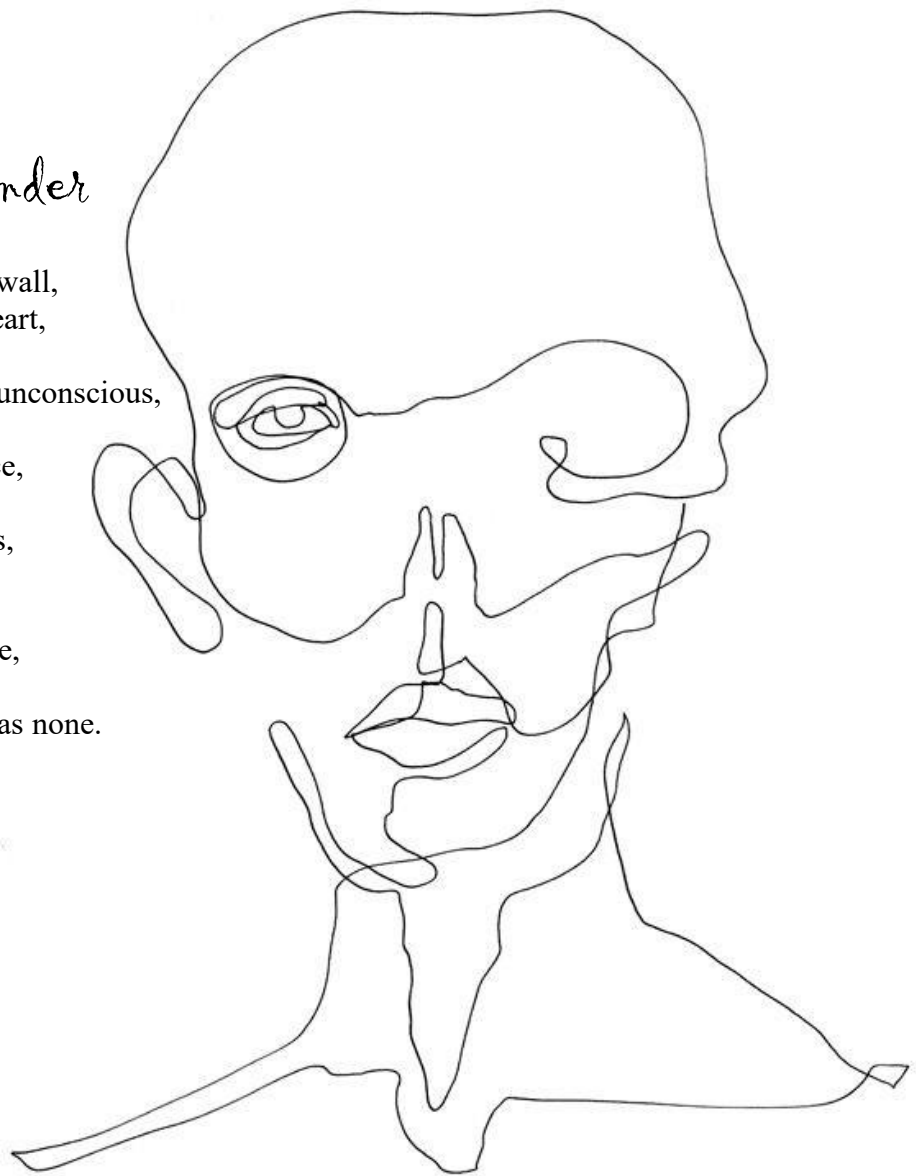 nder
wall,
eart,
unconscious,
e,
s,
e,
as none.